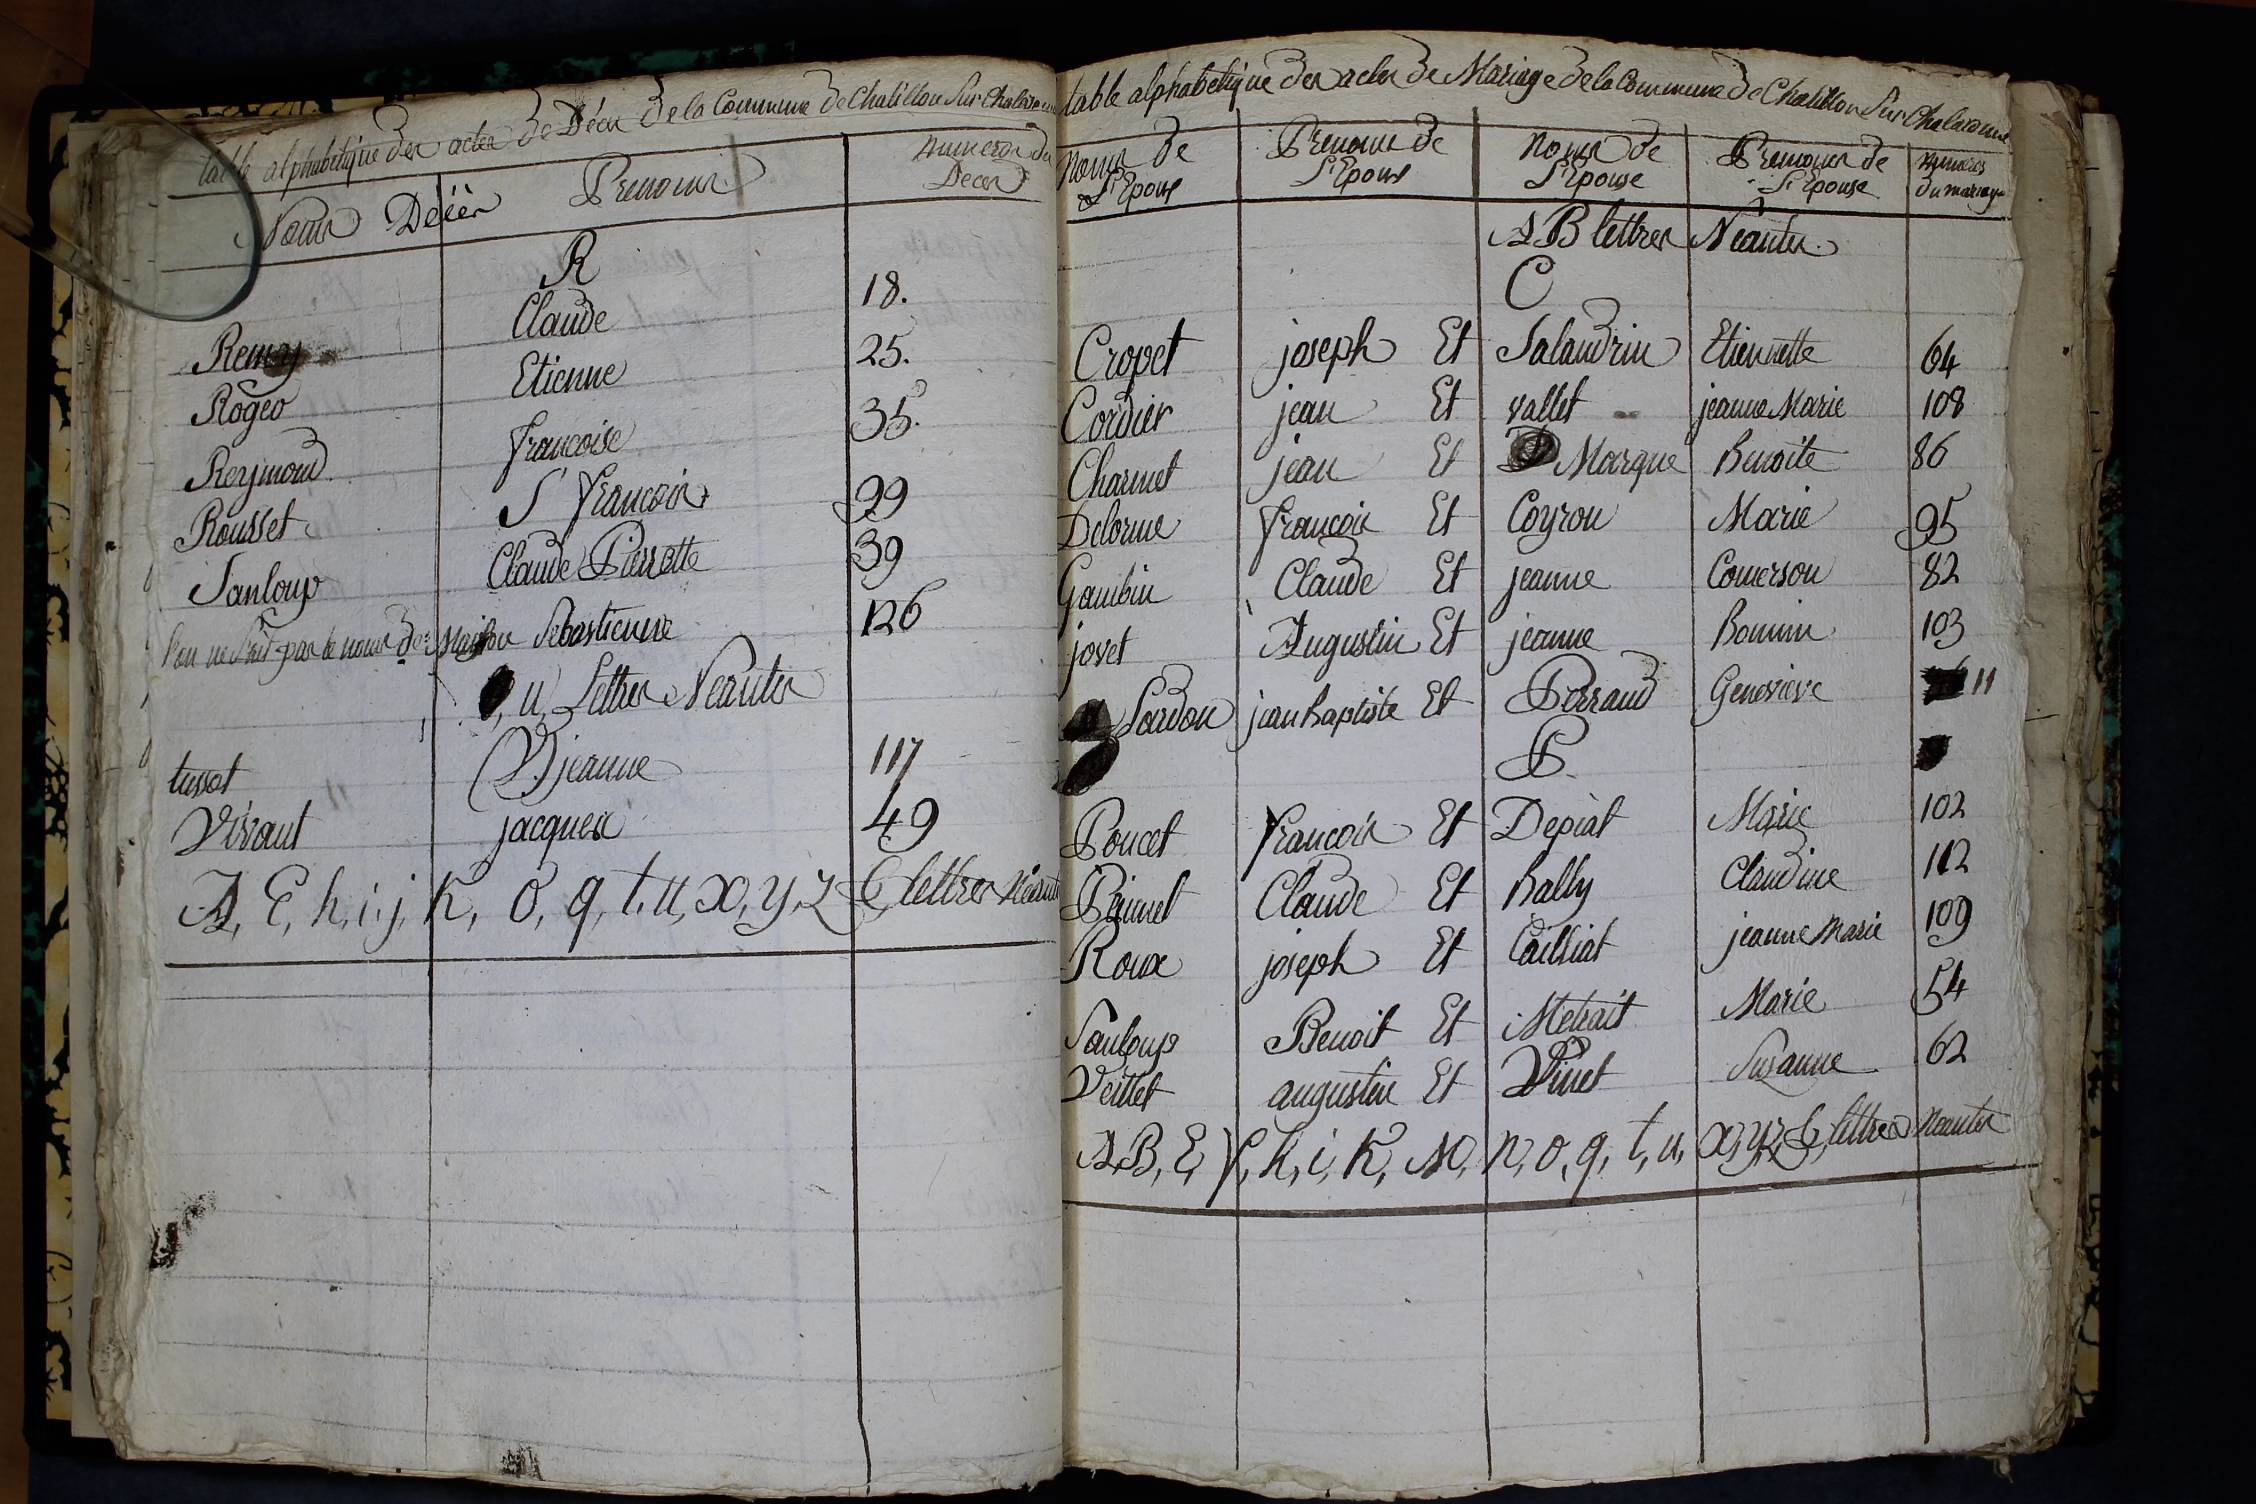 table alphabetique des actes de Déces de la Commune de Chatillon sur Chalaronne
Noms Décés Prenoms numeros du Deces
R
Remy Claude 18.
Rogeo Etienne 25.
Reymond francoise 35.
Rousset S francois 99
Sanloup Claude Pierrette 39
l'on ne sait pas le nom de Maison Sebastienne 126
, u, Lettres Neantes
tussot (V) jeanne 117
Virant jacques 49
A, E, h, i, j, K, o, q, t, u, x, y, z & lettres Néantes
table alphabetique des actes de Mariage de la Commune de Chatillon Sur Chalaronne
Noms de l'Epoux Prenoms de l'Epoux Noms de l'Epouse Prenoms de l'Epouse numeros du mariage
A B lettres Néantes.
C
Cropet joseph Et Salandrin Etiennette 64
Cordier jean Et vallet jeanne Marie 108
Charmet jean Et Marque Benoite 86
Delorme francois Et Coyron Marie 95
Gambin Claude Et jeanne Comerson 82
jovet Augustin Et jeanne Bonnin 103
Lardon jean Baptiste Et Perraud Genevieve 11
P.
Poncet francois Et Depiat Marie 102
Claude Et Bally Claudine 112
Roux joseph Et Cailliat jeanne Marie 109
Sanloup Benoit Et Metrait Marie 54
Veillet augustin Et Vinet Susanne 62
A, B, E, f, h, i, K, M, n, o, q, t, u, x, y, z & lettres Neantes